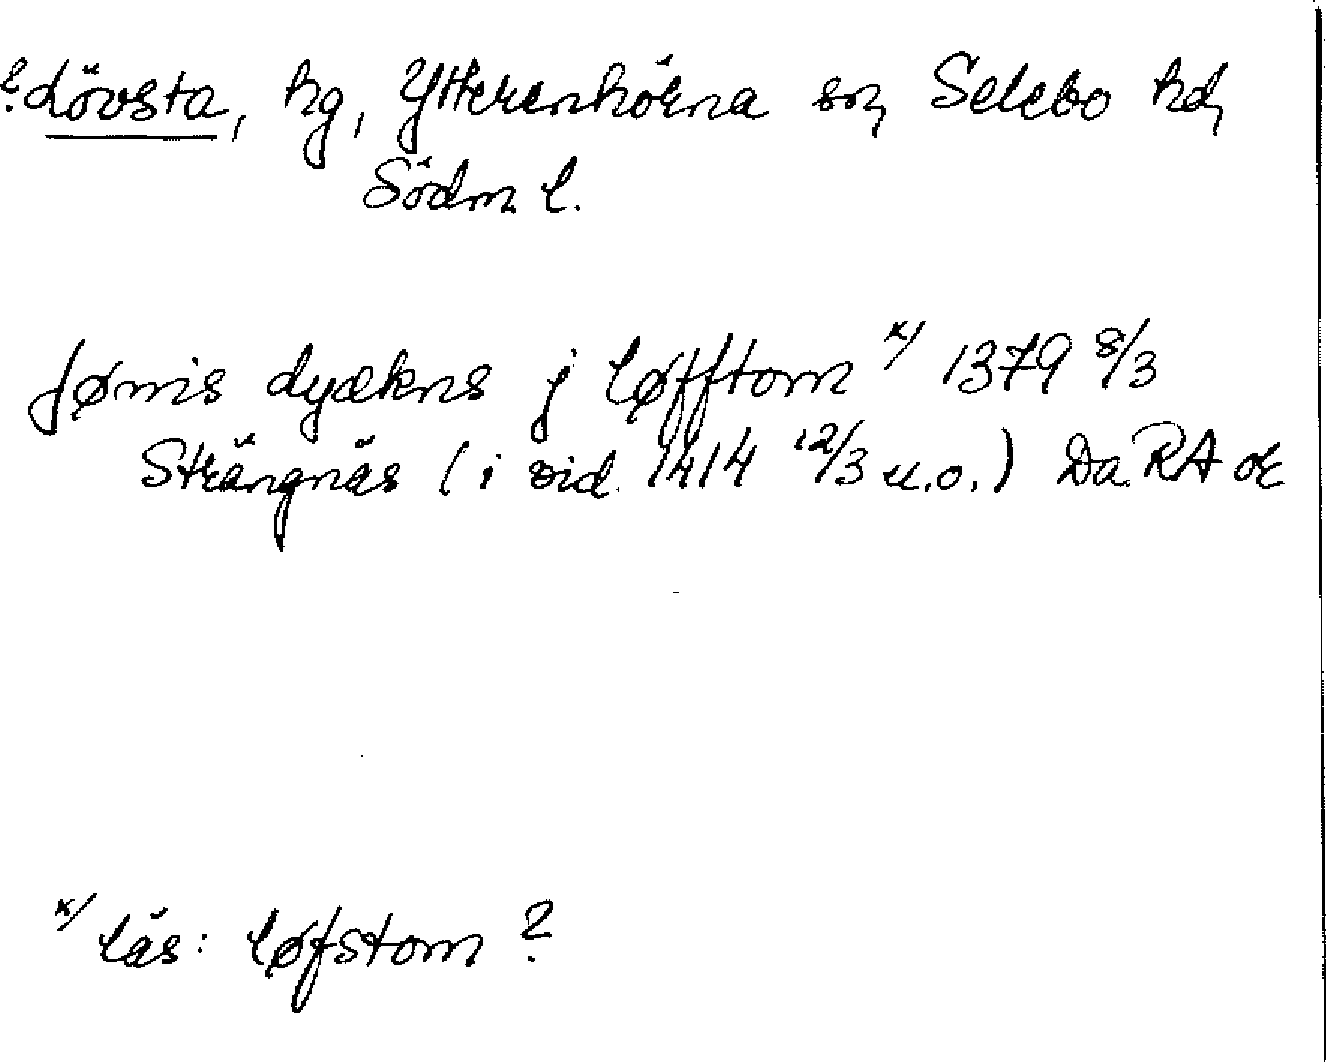 ?Lövsta, hg, Ytterenhörna sn, Selebo hd,
Södm. l.
Jønis dyækns j løfftom x/ 1379 8/3
Strängnäs (i vid. 1414 12/3 u.o.) Da. RA or
x/ läs: løfstom ?